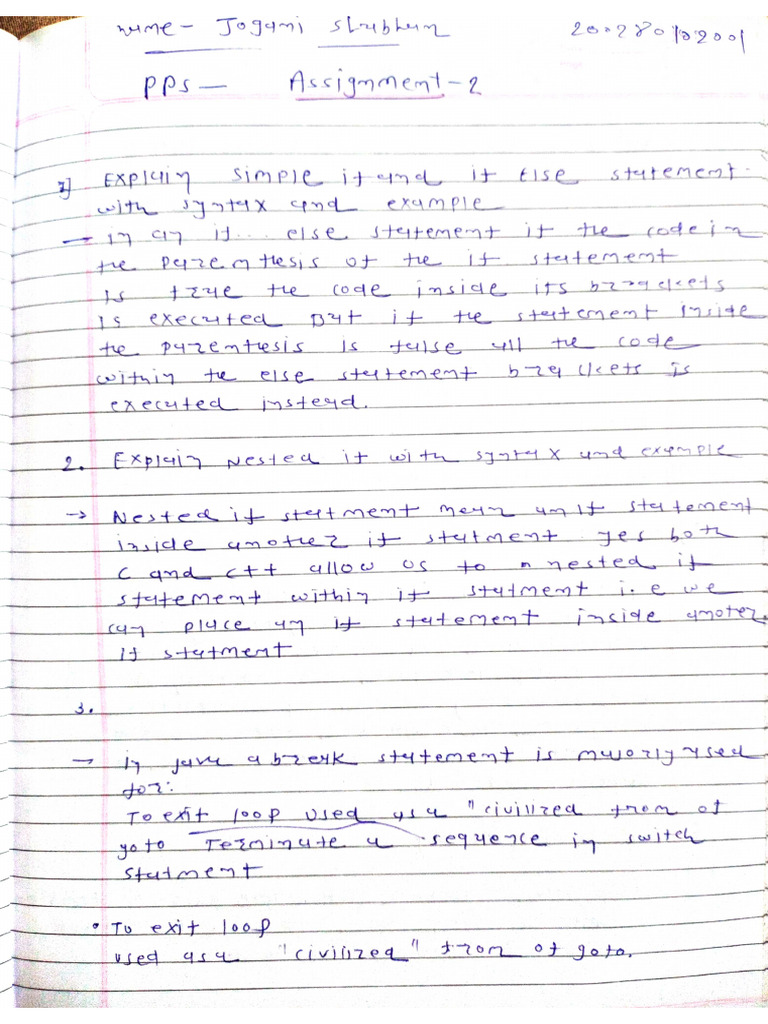 name - Jogani Shubham 200280102001
PPS — Assignment - 2
1] Explain simple if and if else statement.
with syntax and example
→ in an if... else statement if the code in
the parenthesis of the if statement
is true the code inside its brackets
is executed But if the statement inside
the parenthesis is false all the code
within the else statement brackets is
executed instead.
2. Explain Nested if with syntax and example
→ Nested if statment mean an if statement
inside another if statment yes both
C and C++ allow us to nested if
statement within if statment i.e we
can place an if statement inside anoter
if statment
3.
→ in java a break statement is majorly used
for:
To exit loop used as a "civilized from of
goto Terminate a sequence in switch
statment
• To exit loop
used as a "civilized" from of goto.